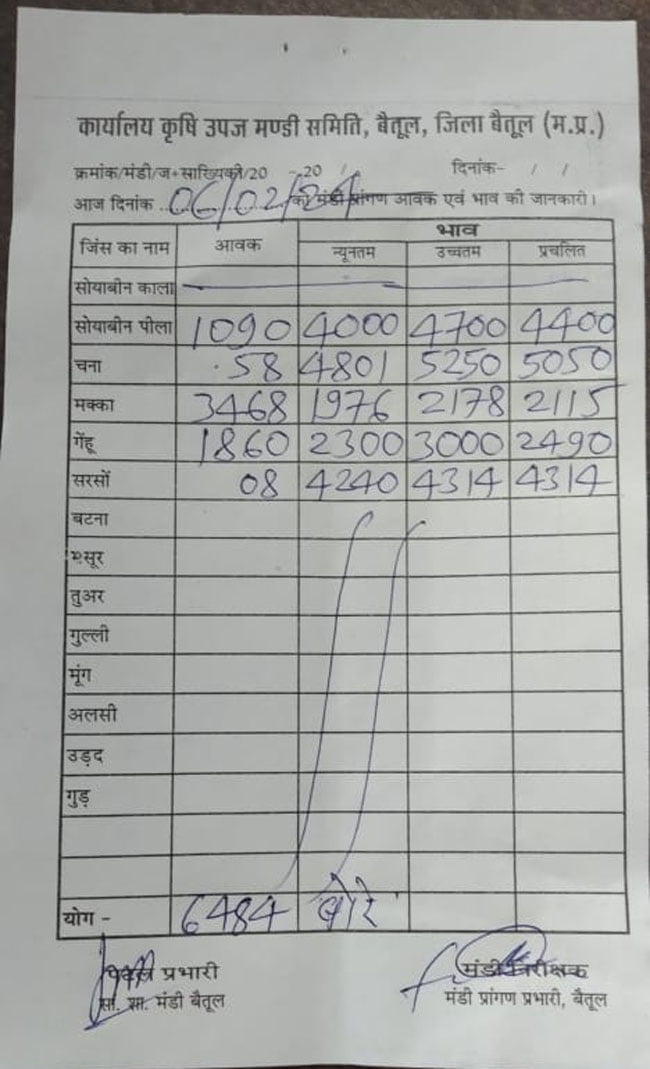 कार्यालय कृषि उपज मण्डी समिति, बैतूल, जिला बैतूल (म.प्र.)
क्रमांक/मंडी/ज+साख्यिकी/20 -20 / दिनांक- / /
आज दिनांक ..06/02/24 को मंडी प्रांगण आवक एवं भाव की जानकारी।
जिंस का नाम आवक भाव
न्यूनतम उच्चतम प्रचलित
सोयाबीन काला
सोयाबीन पीला 1090 4000 4700 4400
चना 58 4801 5250 5050
मक्का 3468 1976 2178 2115
गेंहू 1860 2300 3000 2490
सरसों 08 4240 4314 4314
बटना
मसूर
तुअर
गुल्ली
मूंग
अलसी
उड़द
गुड़
योग - 6484 बोरे
प्रभारी मंडी निरीक्षक
सा. शा. मंडी बैतूल मंडी प्रांगण प्रभारी, बैतूल